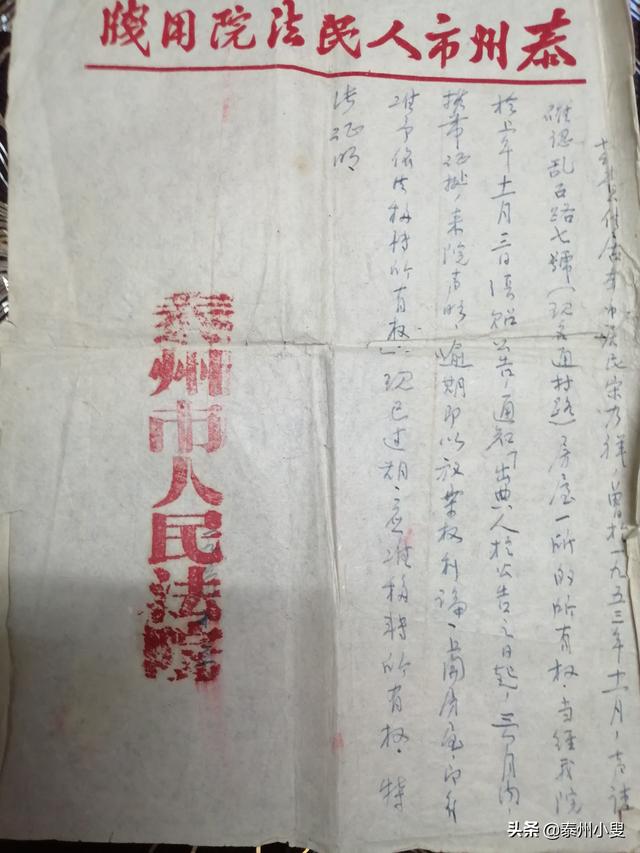 泰州市人民法院用牋
民宋乃祥，曾於一九五三年十一月，声请
確认乱石路七號（现名通村路）房屋一所的所有权，当经我院
於上年十一月三日张贴公告，通知「出典人於公告之日起，三个月内，
携带证据，来院声明，逾期即以放棄权利論，上開房屋，即
准予依法移转所有权」，现已过期，应准移转所有权，特
证明
泰州市人民法院
头条 @泰州小叟